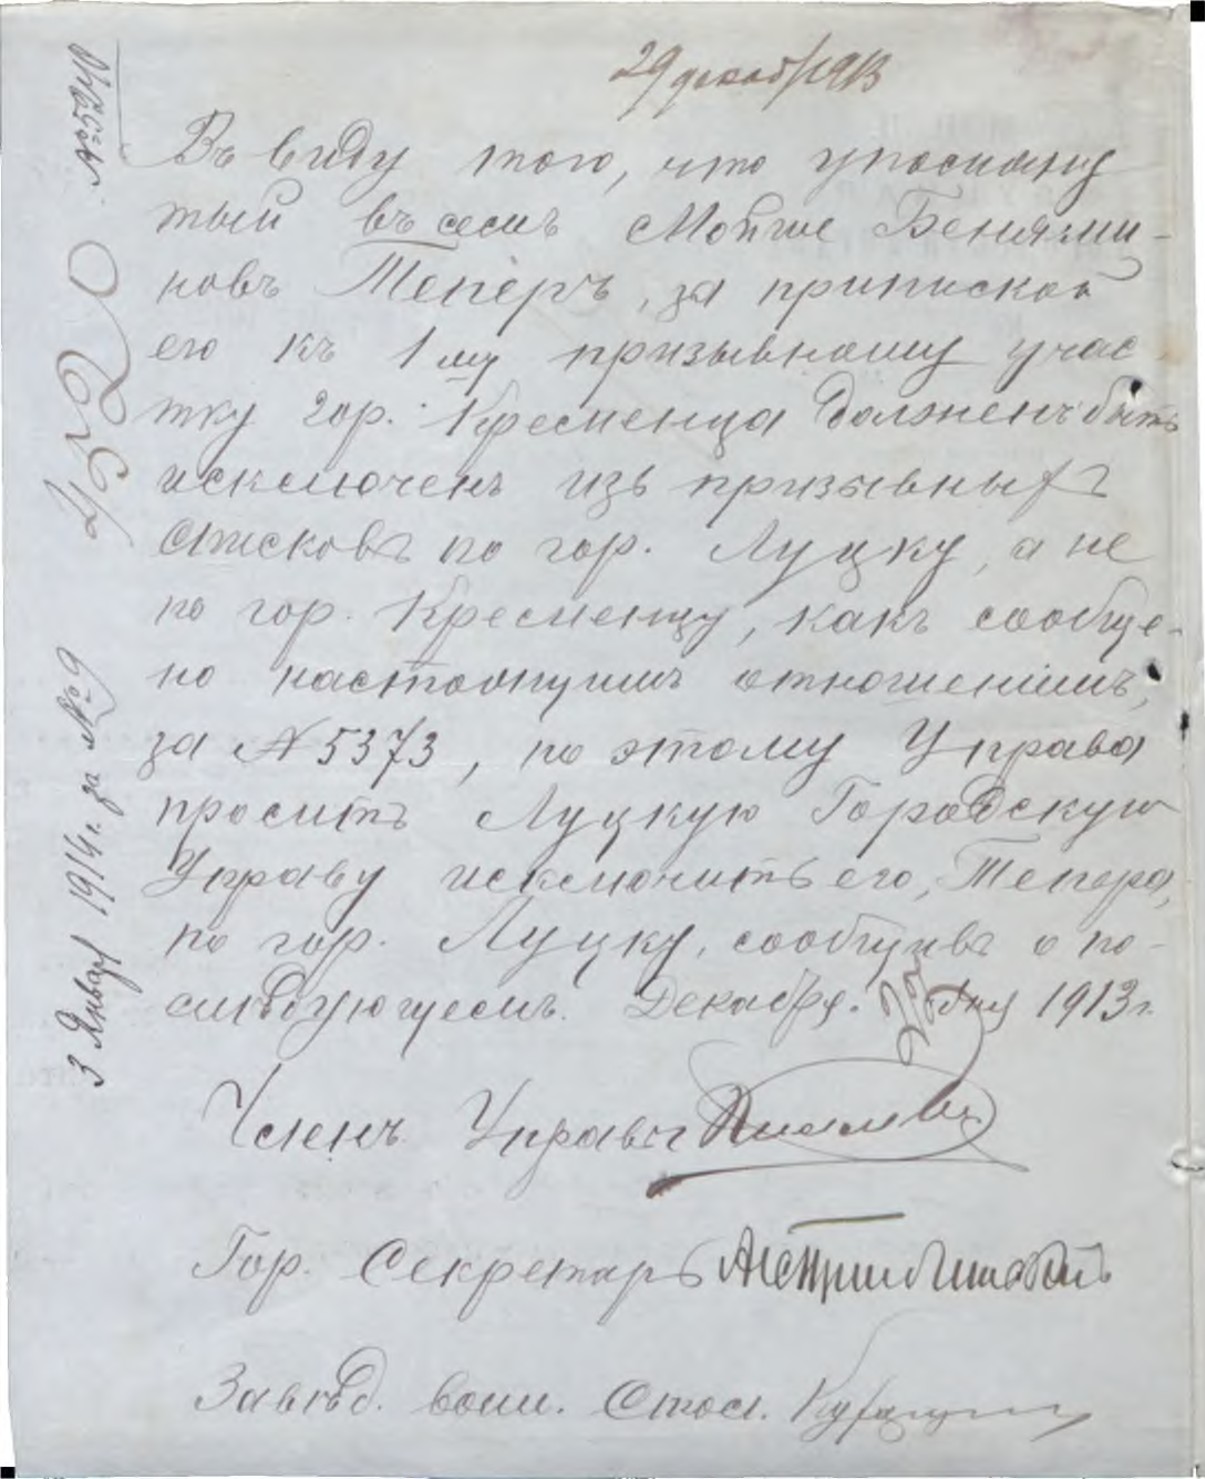 29 декаб/1913
Въ виду того, что упомяну
тый въ семъ Мойше Бенями-
новъ Теперъ, за припиской
его къ 1му призывному учас
тку гор. Кременца долженъ быть
исключенъ изъ призывныхъ
списковъ по гор. Луцку, а не
по гор. Кременцу, какъ сообще-
но настоящимъ отношеніемъ,
за № 5373, по этому Управа
проситъ Луцкую Городскую
Управу исключить его, Тепера,
по гор. Луцку, сообщивъ о по-
слѣдующемъ. Декабря 23 дня 1913 г.
Членъ Управы
Гор. Секретарь
Завѣд. воин. Стол.
№ 5240
452
3 Января 1914 г. за № 9